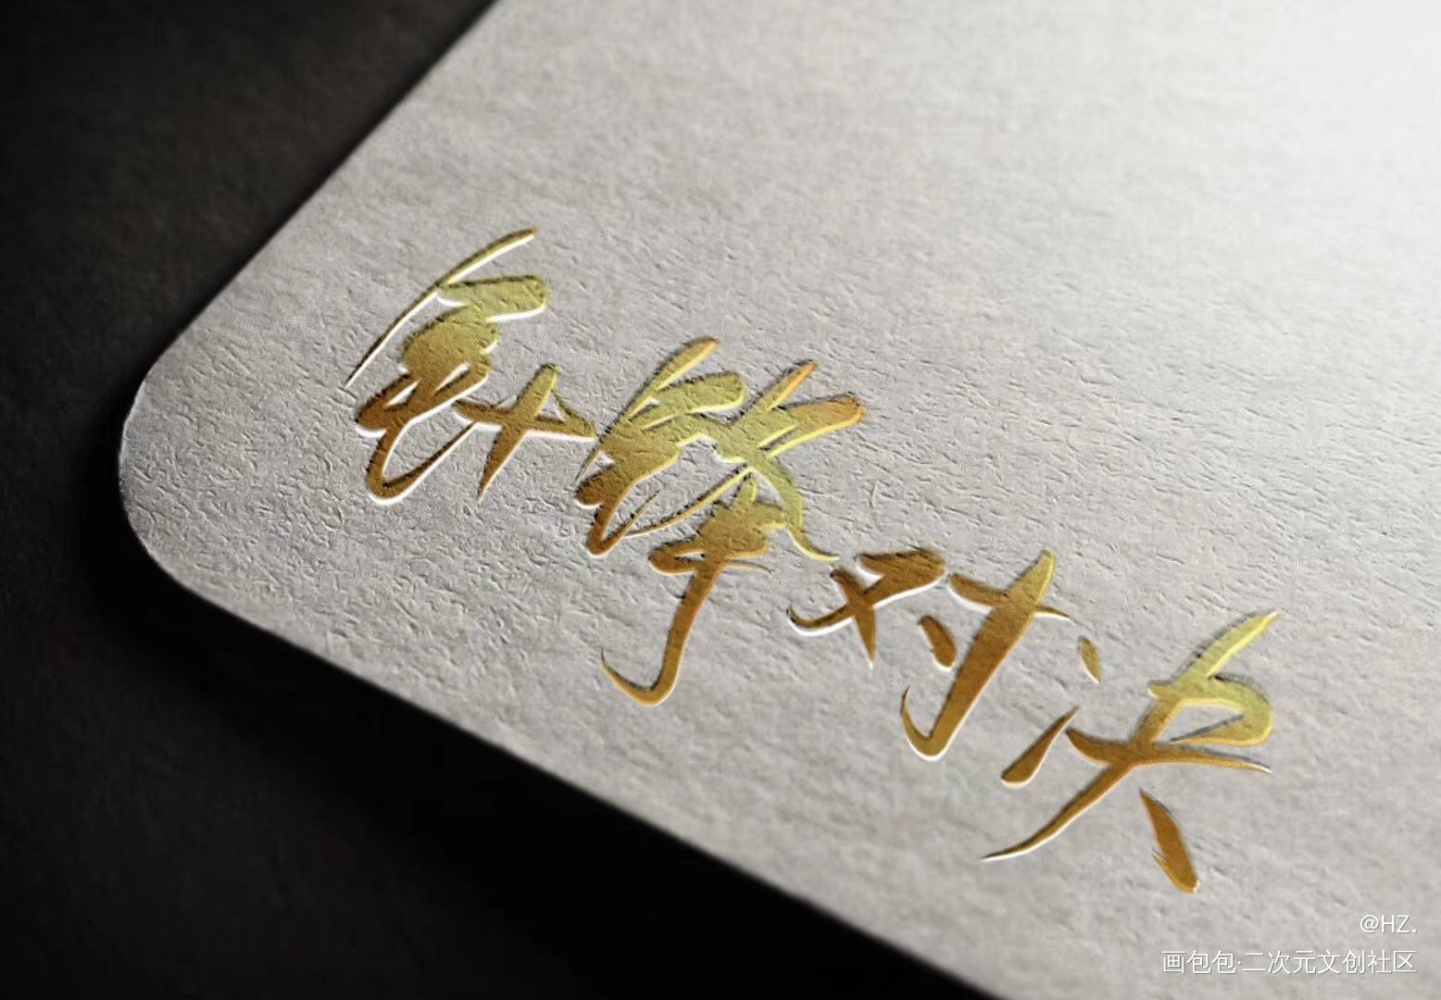 针锋对决
@HZ.
画包包·二次元文创社区